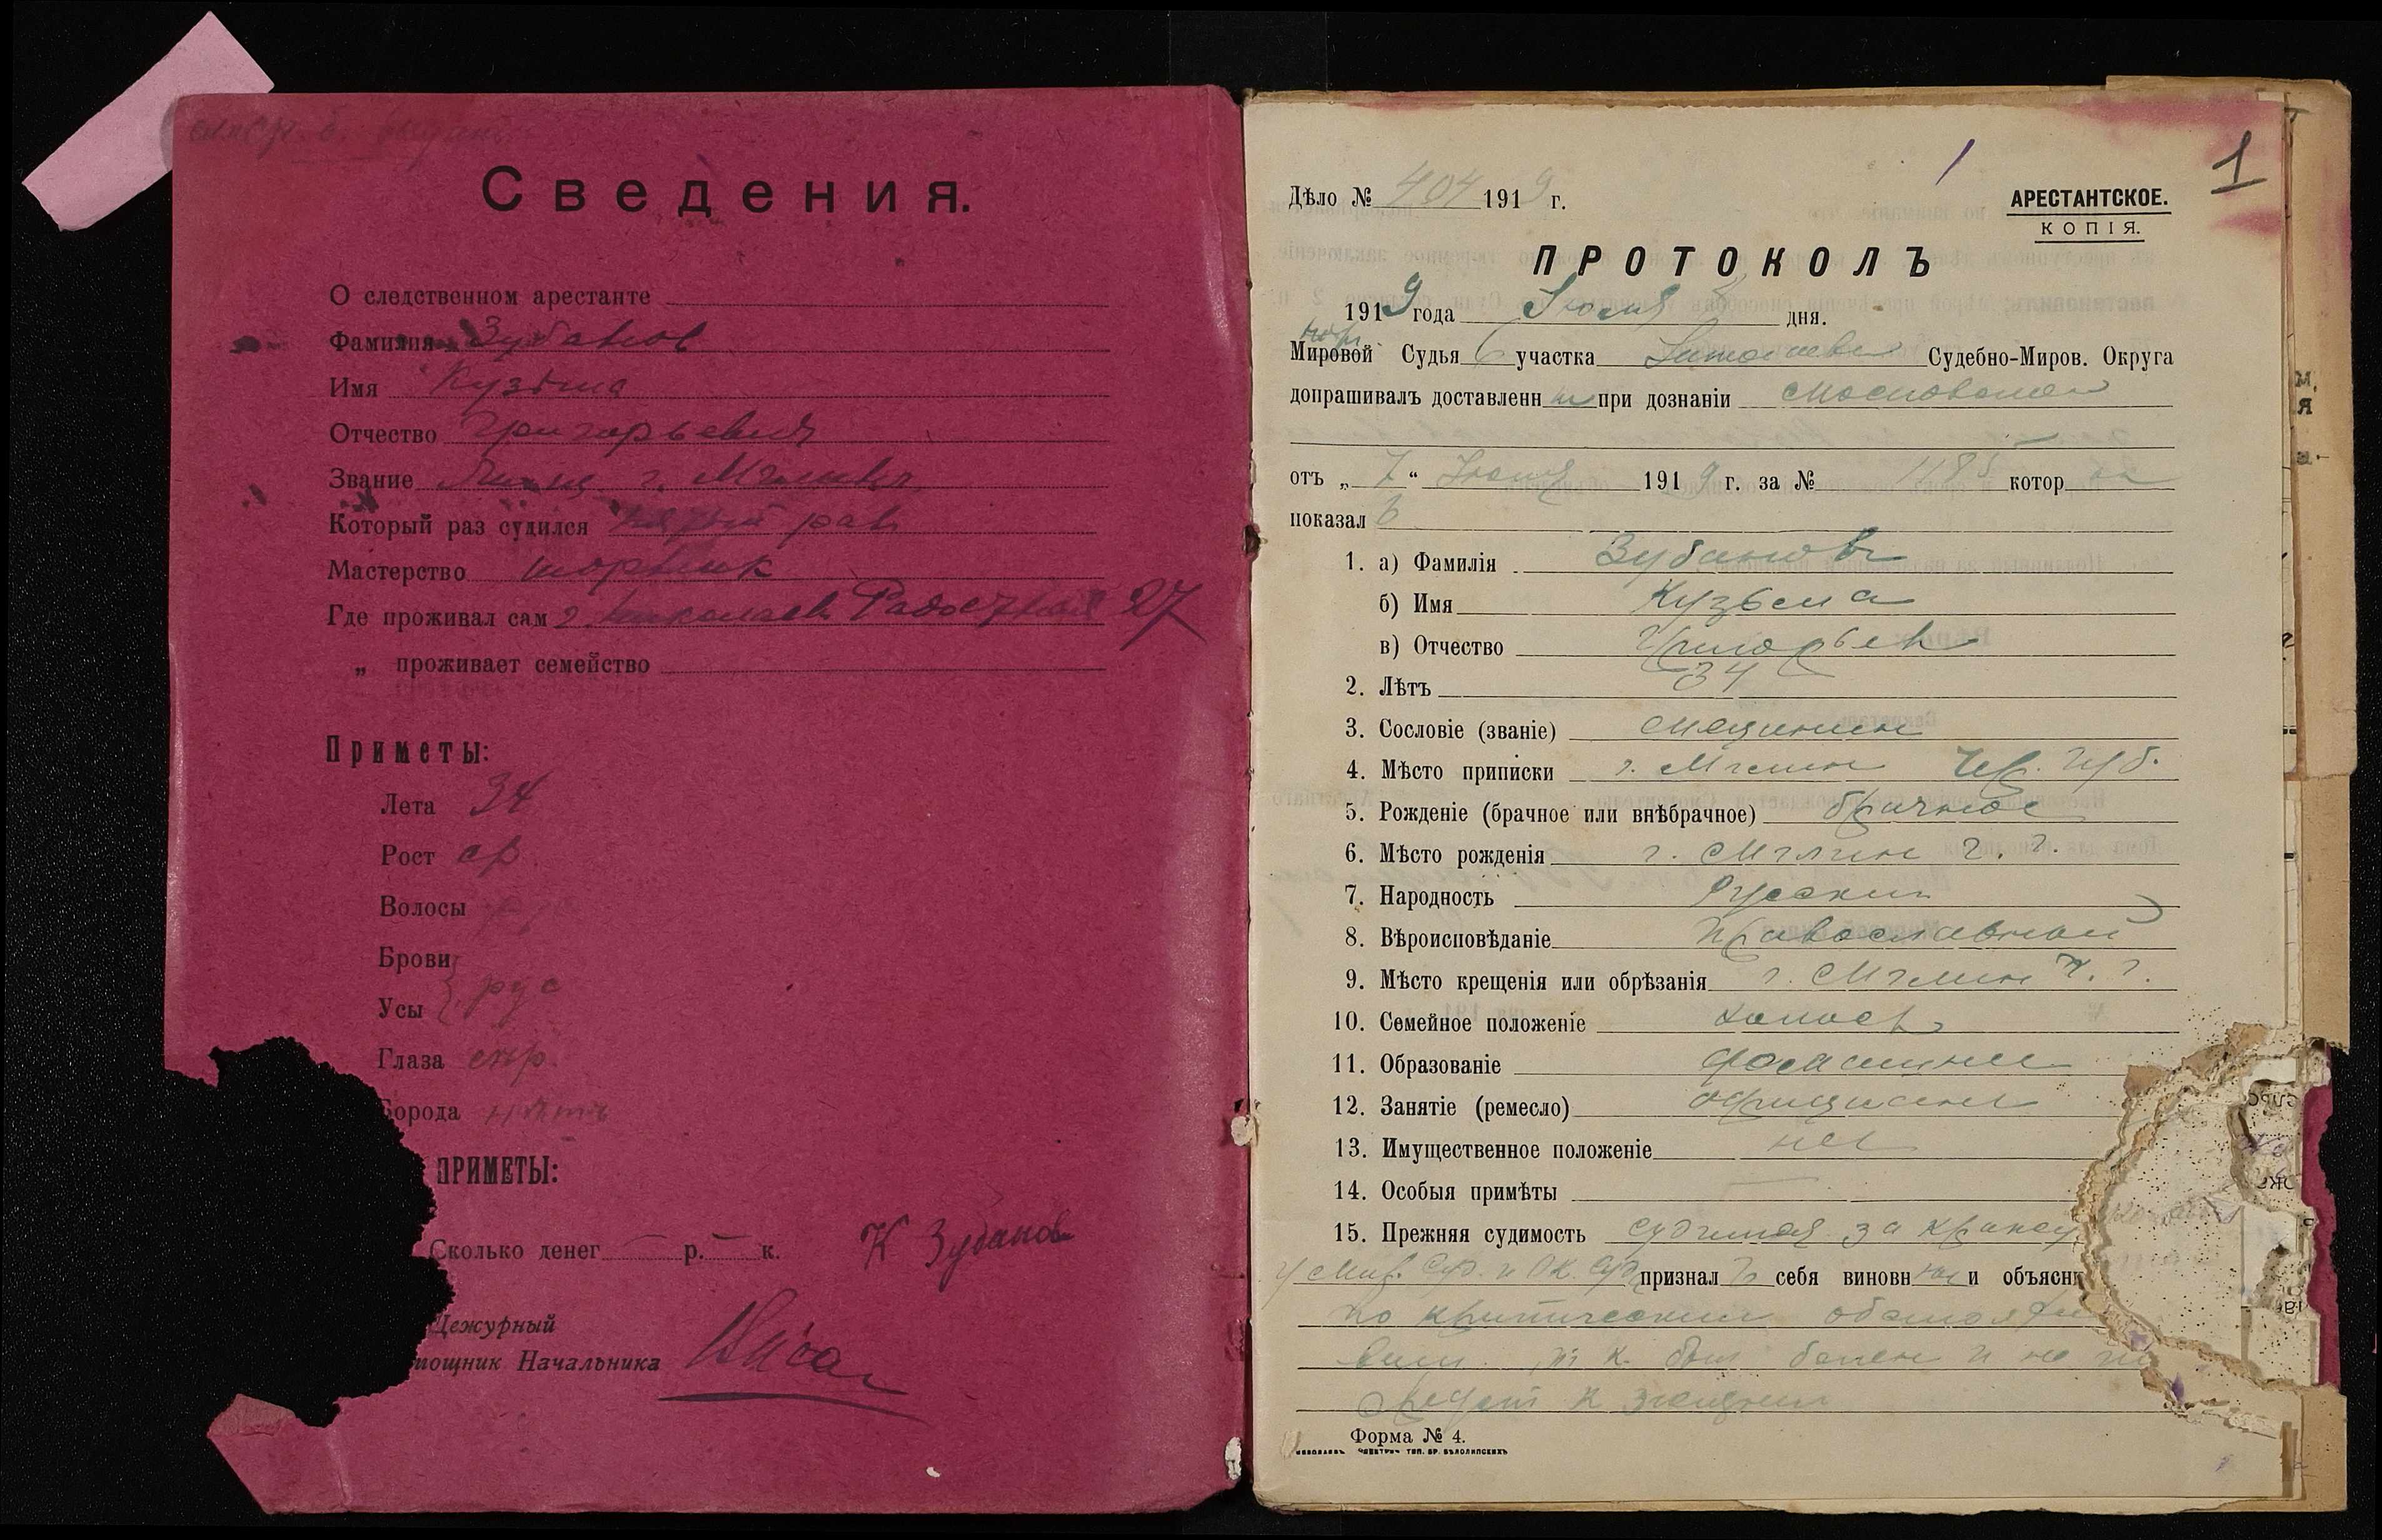 Сведения.
О следственном арестанте
Фамилия Зубанов
Имя Кузьма
Отчество Григорьевич
Звание г. Мглин
Который раз судился раз
Мастерство шорник
Где проживал сам г. Николаев 27
„ проживает семейство
Приметы:
Лета 34
Рост ср
Волосы
Брови
Усы } рус
Глаза
Борода нѣтъ
ПРИМЕТЫ:
Сколько денег — р. — к. К Зубанов
Дежурный
мощник Начальника
1
Дѣло № 404 1919 г. АРЕСТАНТСКОЕ.
КОПІЯ.
ПРОТОКОЛЪ
1919 года Июля дня.
Мировой Судья 6 участка Судебно-Миров. Округа
допрашивалъ доставленн при дознаніи
отъ „ 7 “ Июля 1919 г. за № 1185 котор
показал
1. а) Фамилія Зубановъ
б) Имя Кузьма
в) Отчество Григорьев
2. Лѣтъ 34
3. Сословіе (званіе) мещанин
4. Мѣсто приписки г. Мглин Чер. губ.
5. Рожденіе (брачное или внѣбрачное) брачное
6. Мѣсто рожденія г. Мглин Ч. г.
7. Народность Русский
8. Вѣроисповѣданіе Православный
9. Мѣсто крещенія или обрѣзанія г. Мглин Ч. г.
10. Семейное положеніе холост
11. Образованіе домашнее
12. Занятіе (ремесло)
13. Имущественное положеніе нет
14. Особыя примѣты
15. Прежняя судимость за кражу
у Мир. Суд. и Ок. Суд признал себя виновн и объясн
по критическим обстоят
т. к. был болен и не
средств к жизни
Форма № 4.